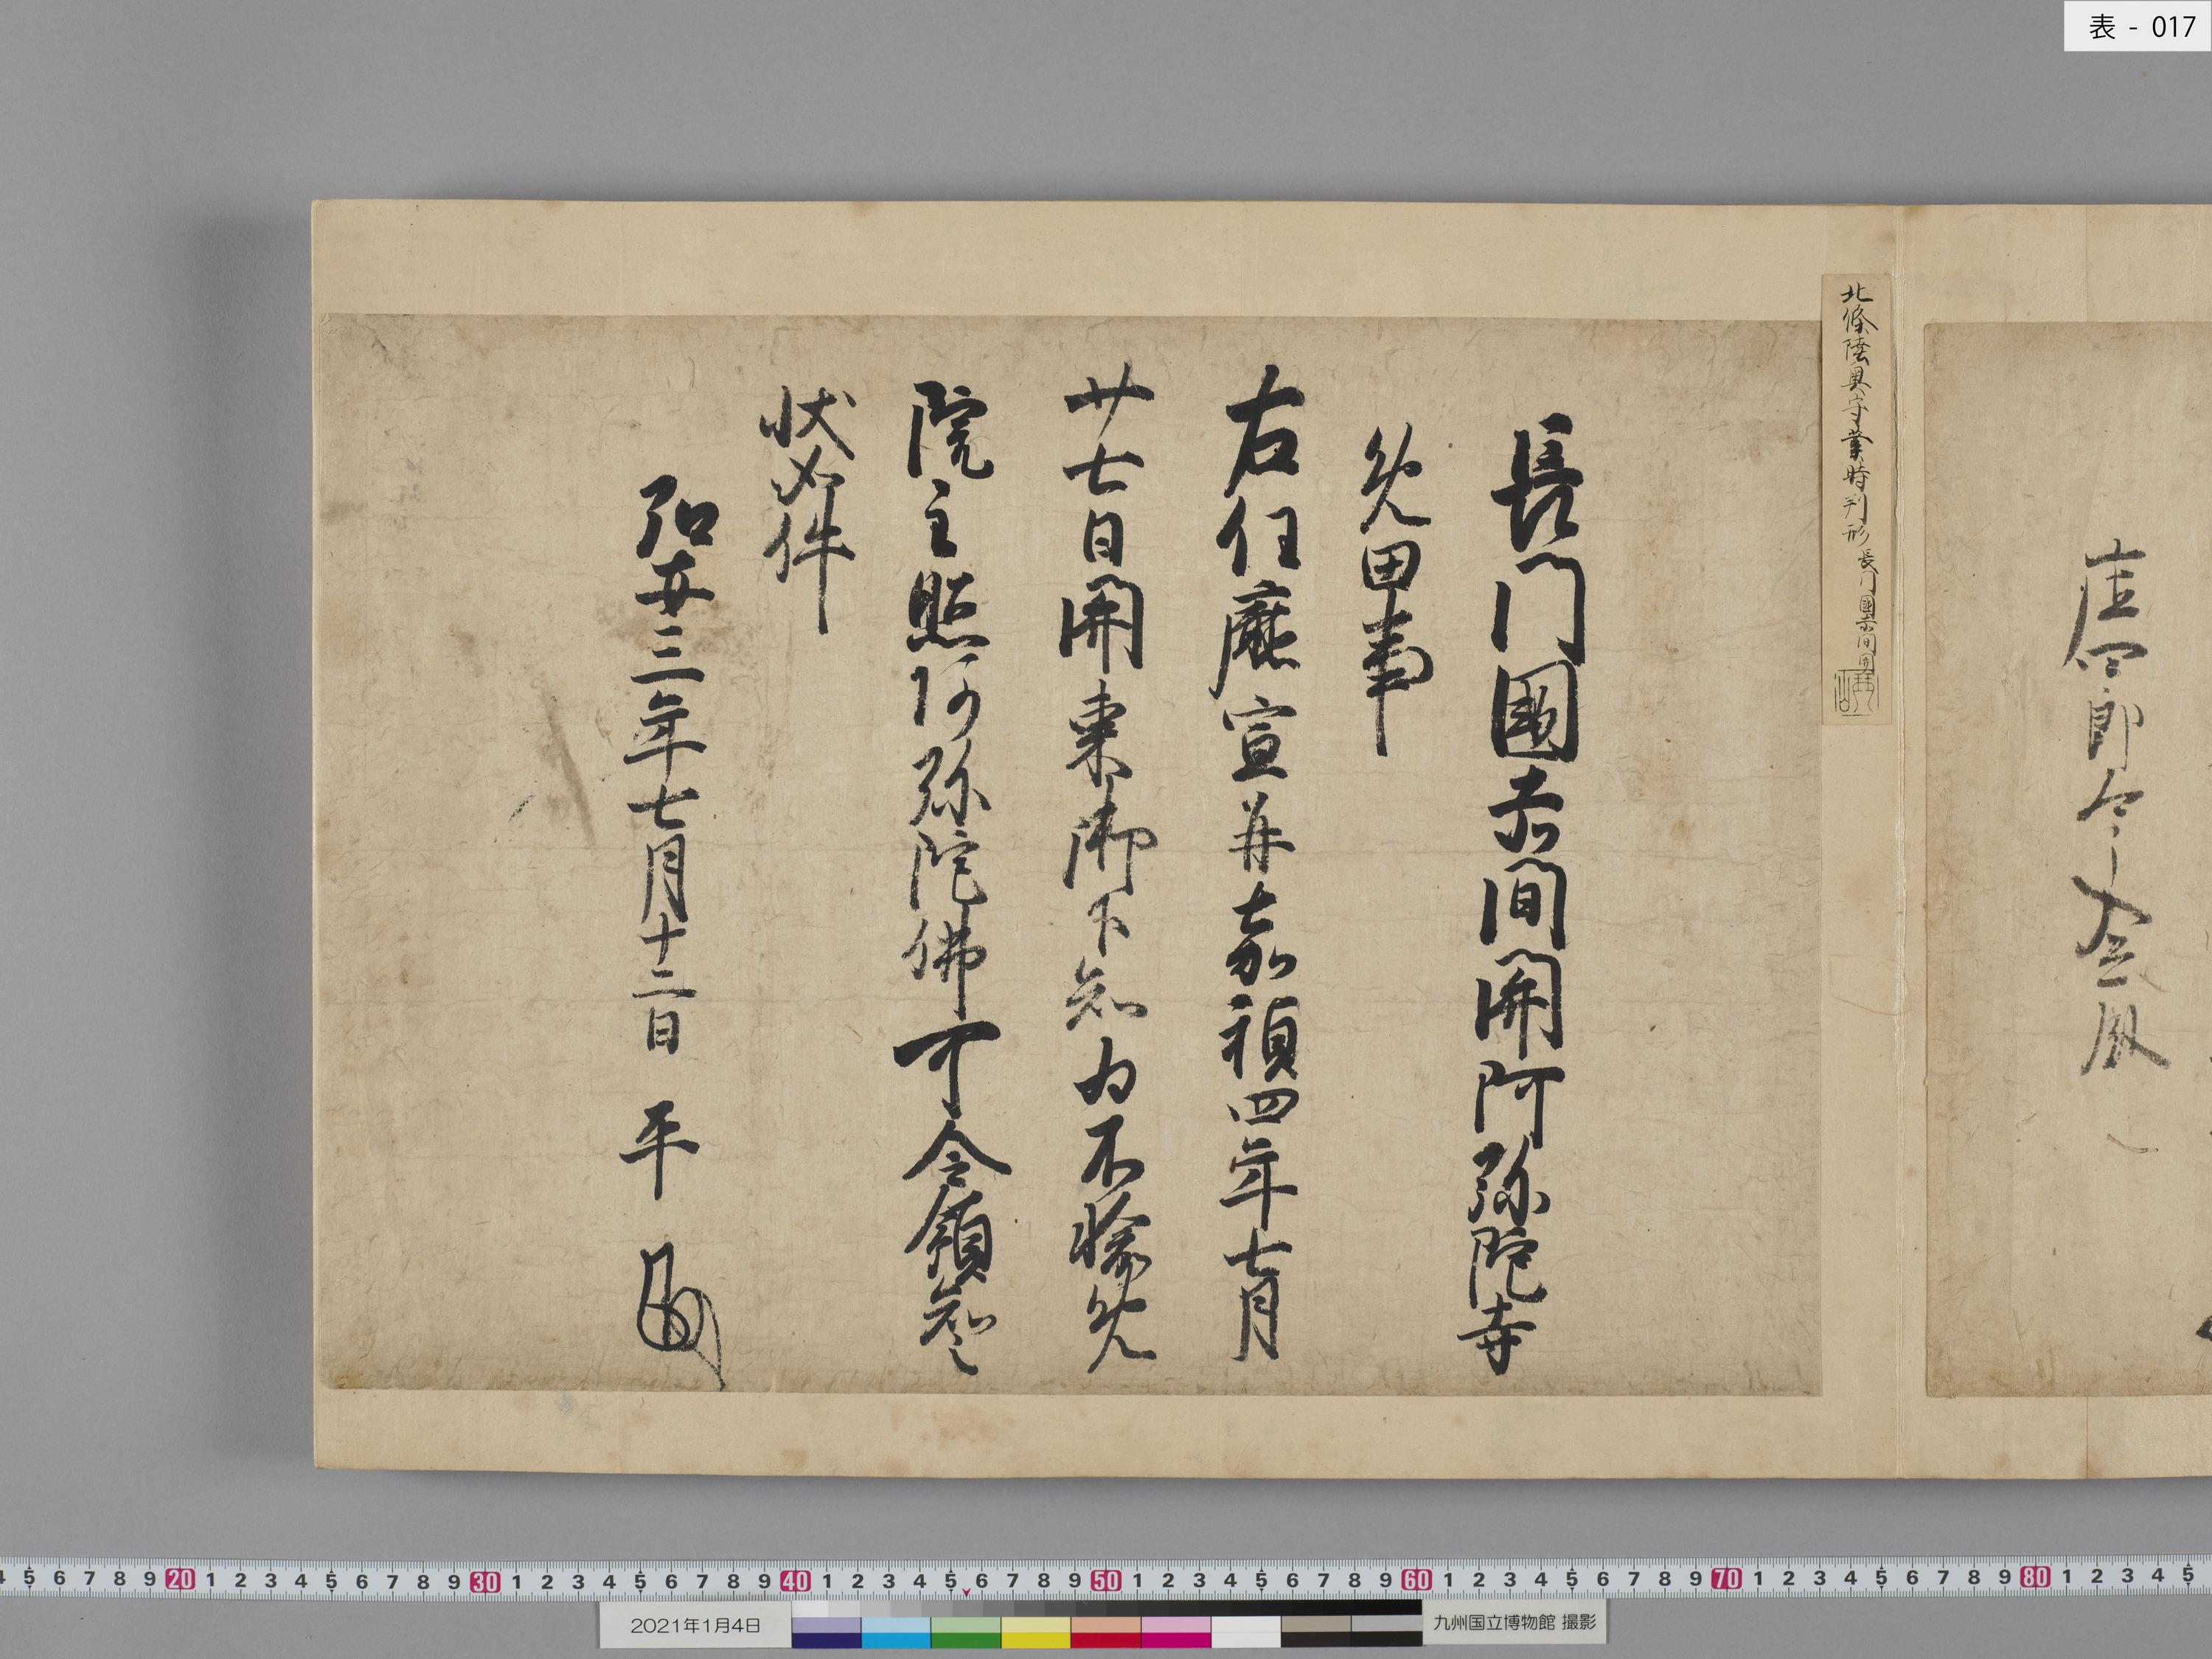 表 - 017
北條陸奥守業時判形 長门國赤间関
長门國赤间関阿弥陀寺
免田事
右任廳宣并嘉禎四年七月
廿七日関東御下知為不輸免
院主照阿弥陀佛可令領知之
状如件
弘安三年七月十二日 平
4 5 6 7 8 9 20 1 2 3 4 5 6 7 8 9 30 1 2 3 4 5 6 7 8 9 40 1 2 3 4 5 6 7 8 9 50 1 2 3 4 5 6 7 8 9 60 1 2 3 4 5 6 7 8 9 70 1 2 3 4 5 6 7 8 9 80 1 2 3 4 5
2021年1月4日
九州国立博物館 撮影